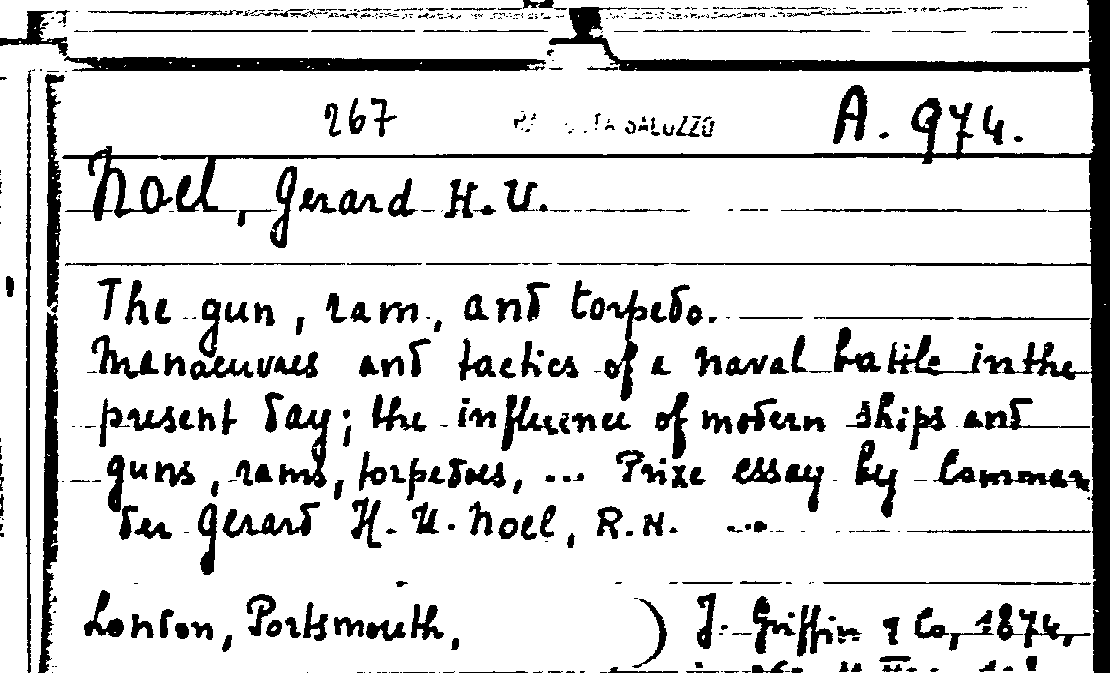 267 SALUZZO A. 974.
Noel, Gerard H. U.
The gun, ram, and torpedo.
Manoeuvres and tactics of a naval battle in the
present day; the influence of modern ships and
guns, rams, torpedoes, ... Prize essay by Comman
der Gerard H. U. Noel, R.N. ...
London, Portsmouth, ) J. Griffin & Co, 1874,